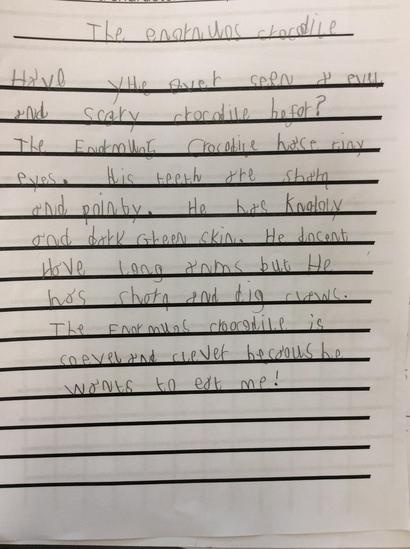 The enormuns crocodile
Have yhe aver seen a evel
and scary crocodile befor?
The Enormuns Crocodile hase tiny
eyes. His teeth are sharp
and pointy. He has Knobbly
and dark Green skin. He dosent
Have long arms but He
has sharp and big claws.
The Enormuns croocdile is
and clever becouse he
wants to eat me!